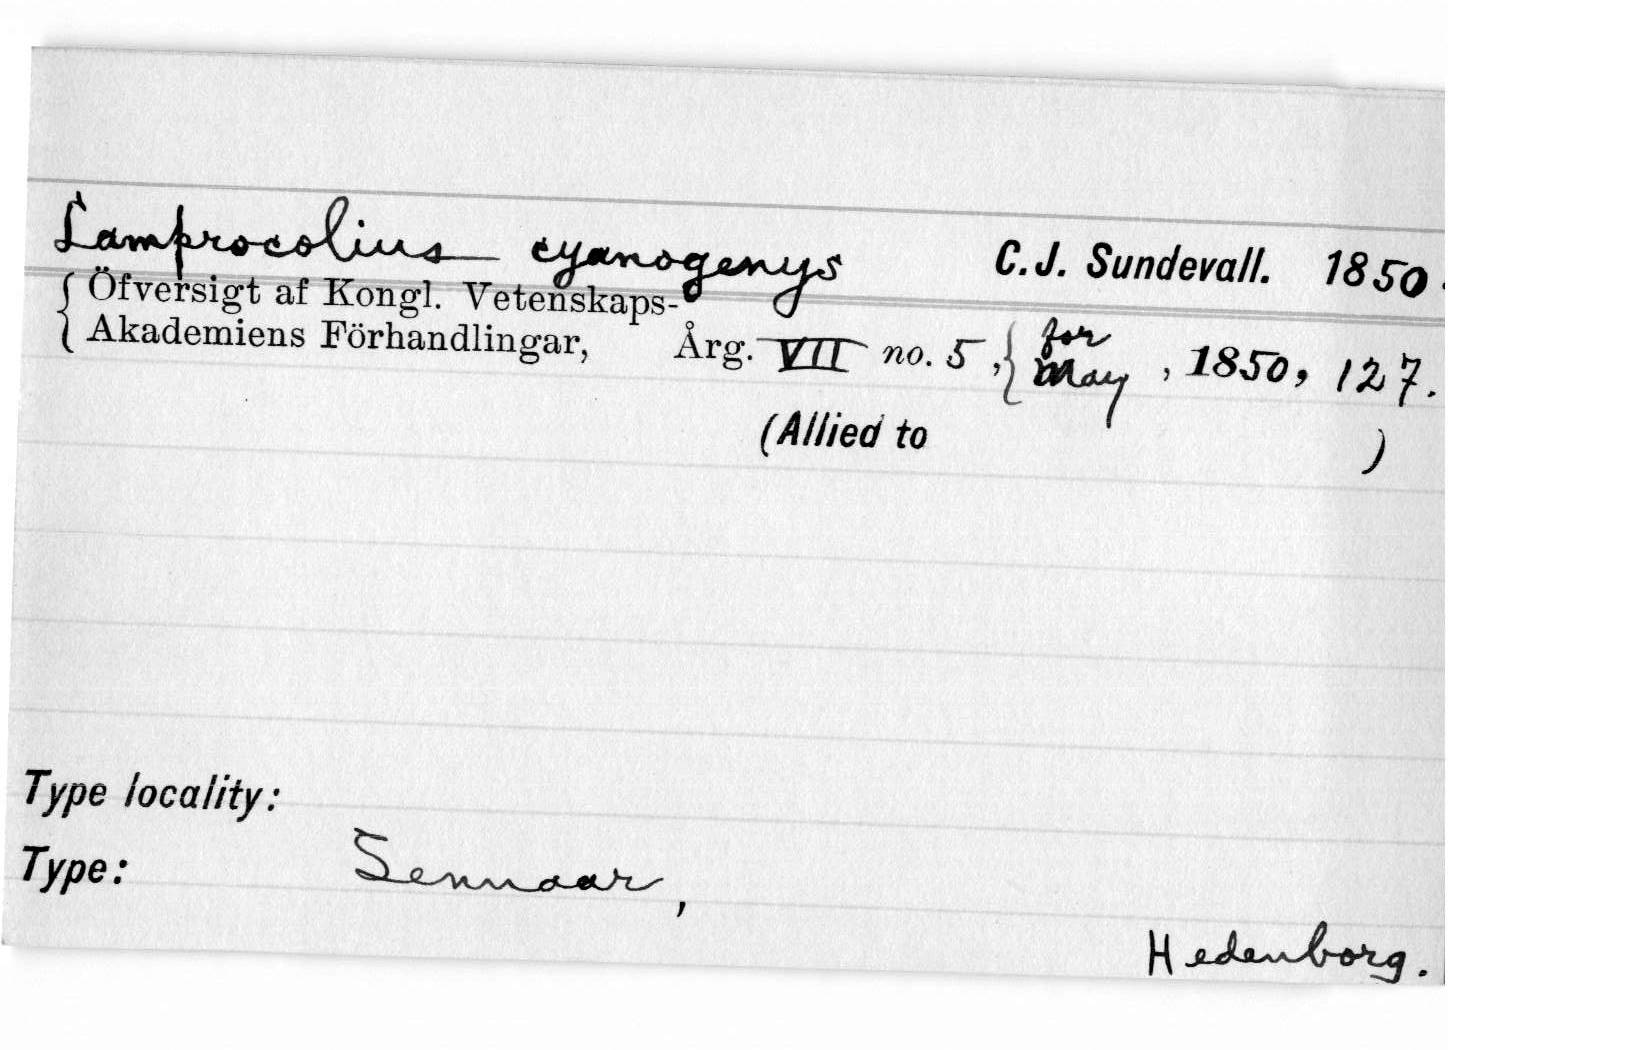 Lamprocolius cyanogenys C.J. Sundevall. 1850.
{ Öfversigt af Kongl. Vetenskaps-
Akademiens Förhandlingar, Årg. VII no. 5, { for May, 1850, 127.
(Allied to )
Type locality:
Type: Sennaar,
Hedenborg.